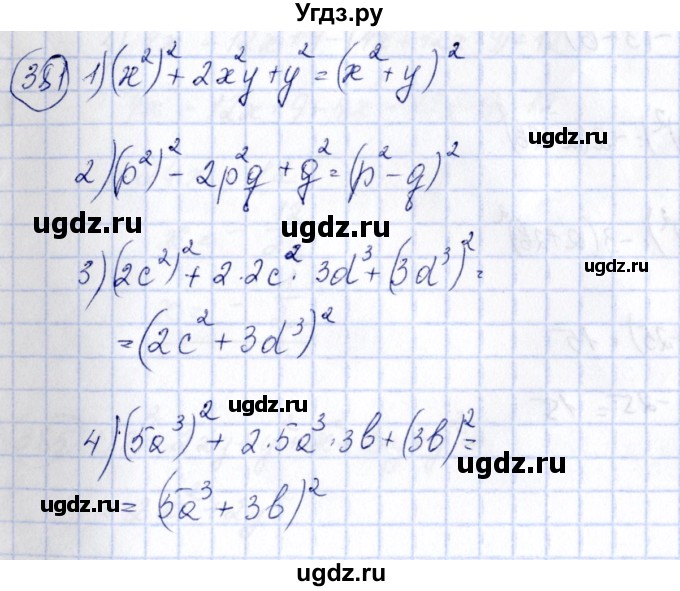 Угдз.ру
381 1) (x²)² + 2x²y + y² = (x² + y)²
ugdz.ru
2) (p²)² - 2p²q + q² = (p² - q)²
ugdz.ru ugdz.ru
3) (2c²)² + 2·2c²·3d³ + (3d³)² =
= (2c² + 3d³)²
ugdz.ru
4) (5a³)² + 2·5a³·3b + (3b)² =
ugdz.ru
= (5a³ + 3b)²
ugdz.ru ugdz.ru
ugdz.ru